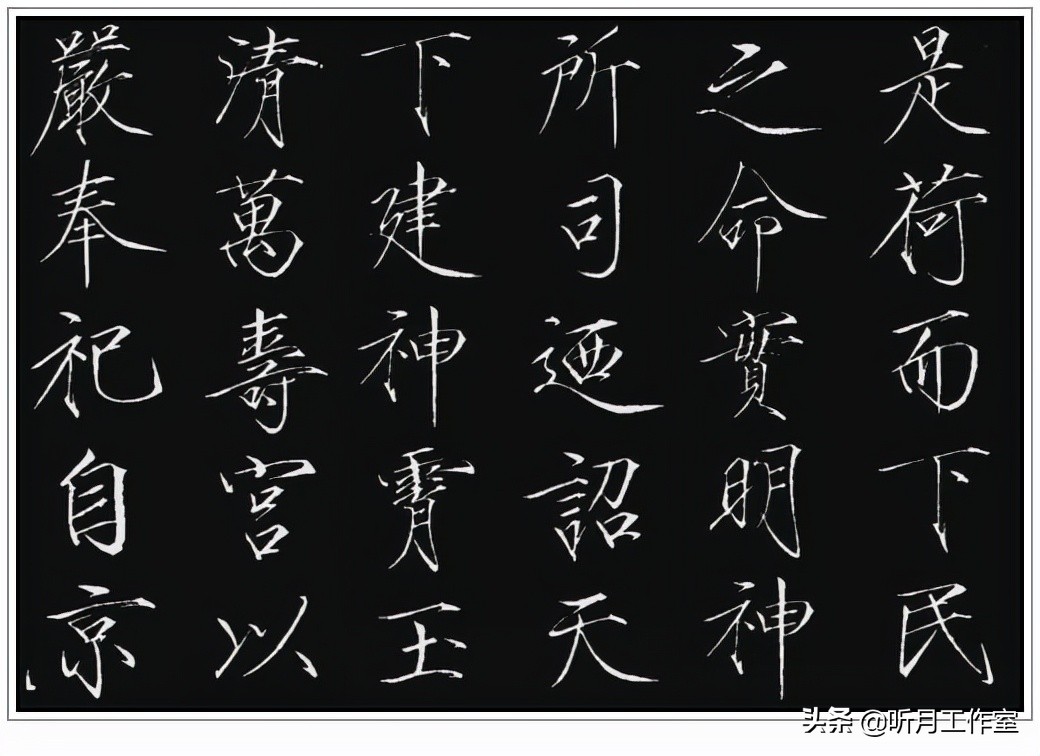 是荷而下民
之命實明神
所司迺詔天
下建神霄玉
清萬壽宮以
嚴奉祀自京
头条 @听月工作室